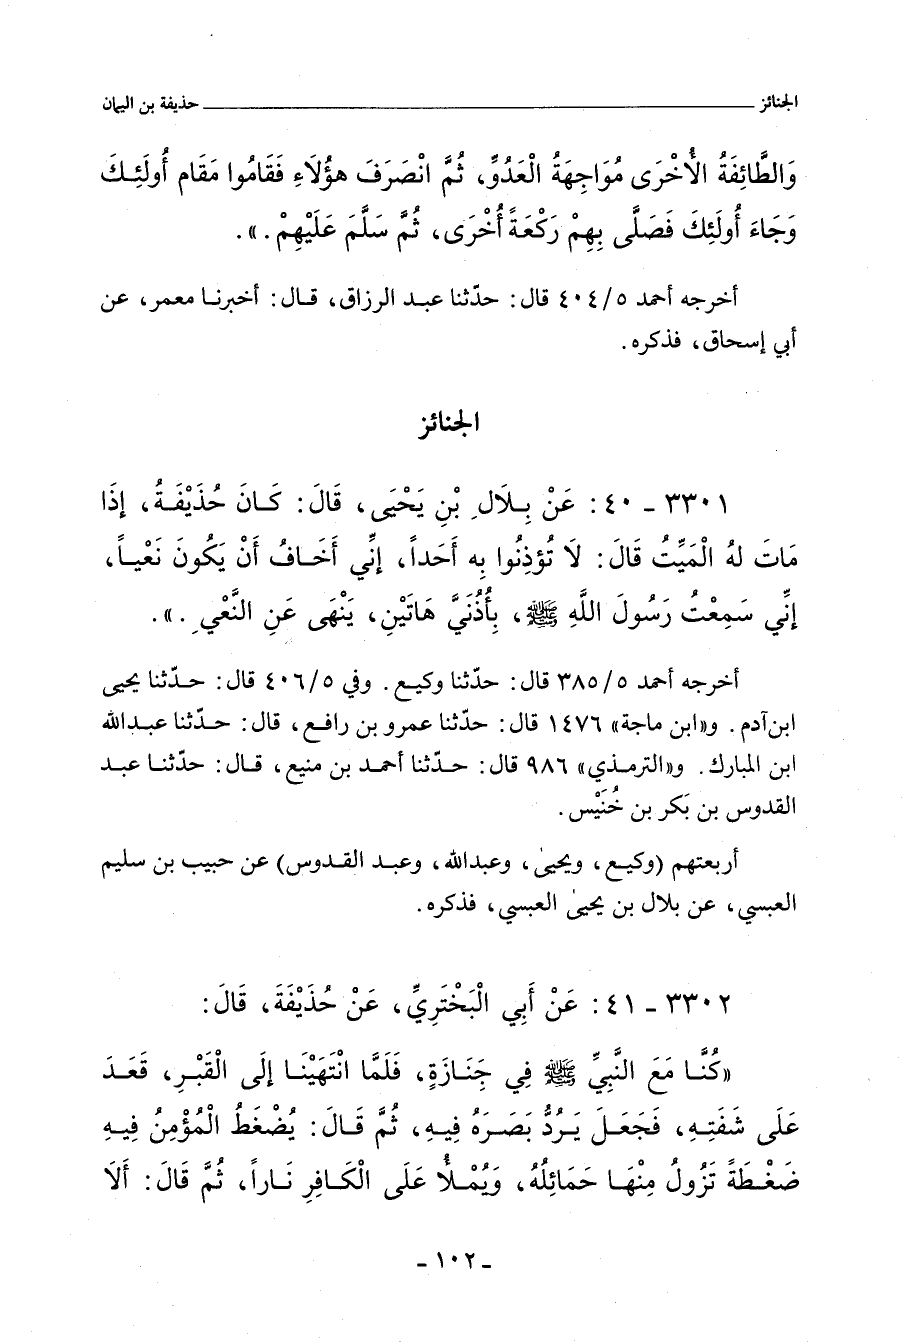 الجنائز حذيفة بن اليمان
وَالطَّائِفَةُ الأُخْرَى مُوَاجِهَةُ الْعَدُوِّ، ثُمَّ انْصَرَفَ هؤُلَاءِ فَقَامُوا مَقَام أُولَئِكَ
وَجَاءَ أُولَئِكَ فَصَلَّى بِهِمْ رَكْعَةً أُخْرَى، ثُمَّ سَلَّمَ عَلَيْهِمْ.».
أخرجه أحمد ٥/ ٤٠٤ قال: حدّثنا عبد الرزاق، قال: أخبرنا معمر، عن
أبي إسحاق، فذكره.
الجنائز
٣٣٠١ - ٤٠: عَنْ بِلَالِ بْنِ يَحْيَى، قَالَ: كَانَ حُذَيْفَةُ، إِذَا
مَاتَ لهُ الْمَيِّتُ قَالَ: لَا تُؤذِنُوا بِه أَحَداً، إِنِّي أَخَافُ أَنْ يَكُونَ نَعْياً،
إِنِّي سَمِعْتُ رَسُولَ اللَّهِ ﷺ، بِأُذُنَيَّ هَاتَيْنِ، يَنْهَى عَنِ النَّعْيِ.».
أخرجه أحمد ٥/ ٣٨٥ قال: حدّثنا وكيع. وفي ٥/ ٤٠٦ قال: حدّثنا يحيى
ابن آدم. و«ابن ماجة» ١٤٧٦ قال: حدّثنا عمرو بن رافع، قال: حدّثنا عبدالله
ابن المبارك. و«الترمذي» ٩٨٦ قال: حدّثنا أحمد بن منيع، قال: حدّثنا عبد
القدوس بن بَكر بن خُنَيْس.
أربعتهم (وكيع، ويحيىٰ، وعبدالله، وعبد القدوس) عن حبيب بن سليم
العبسي، عن بلال بن يحيىٰ العبسي، فذكره.
٣٣٠٢ - ٤١: عَنْ أَبِي الْبَخْتَرِيِّ، عَنْ حُذَيْفَةَ، قَالَ:
«كُنَّا مَعَ النَّبِيِّ ﷺ فِي جَنَازَةٍ، فَلَمَّا انْتَهَيْنَا إِلَى الْقَبْرِ، قَعَدَ
عَلَى شَفَتِهِ، فَجَعَلَ يَرُدُّ بَصَرَهُ فِيهِ، ثُمَّ قَالَ: يُضْغَطُ الْمُؤْمِنُ فِيهِ
ضَغْطَةً تَزُولُ مِنْهَا حَمَائِلُهُ، وَيُمْلأُ عَلَى الْكَافِرِ نَاراً، ثُمَّ قَالَ: أَلَا
- ١٠٢ -